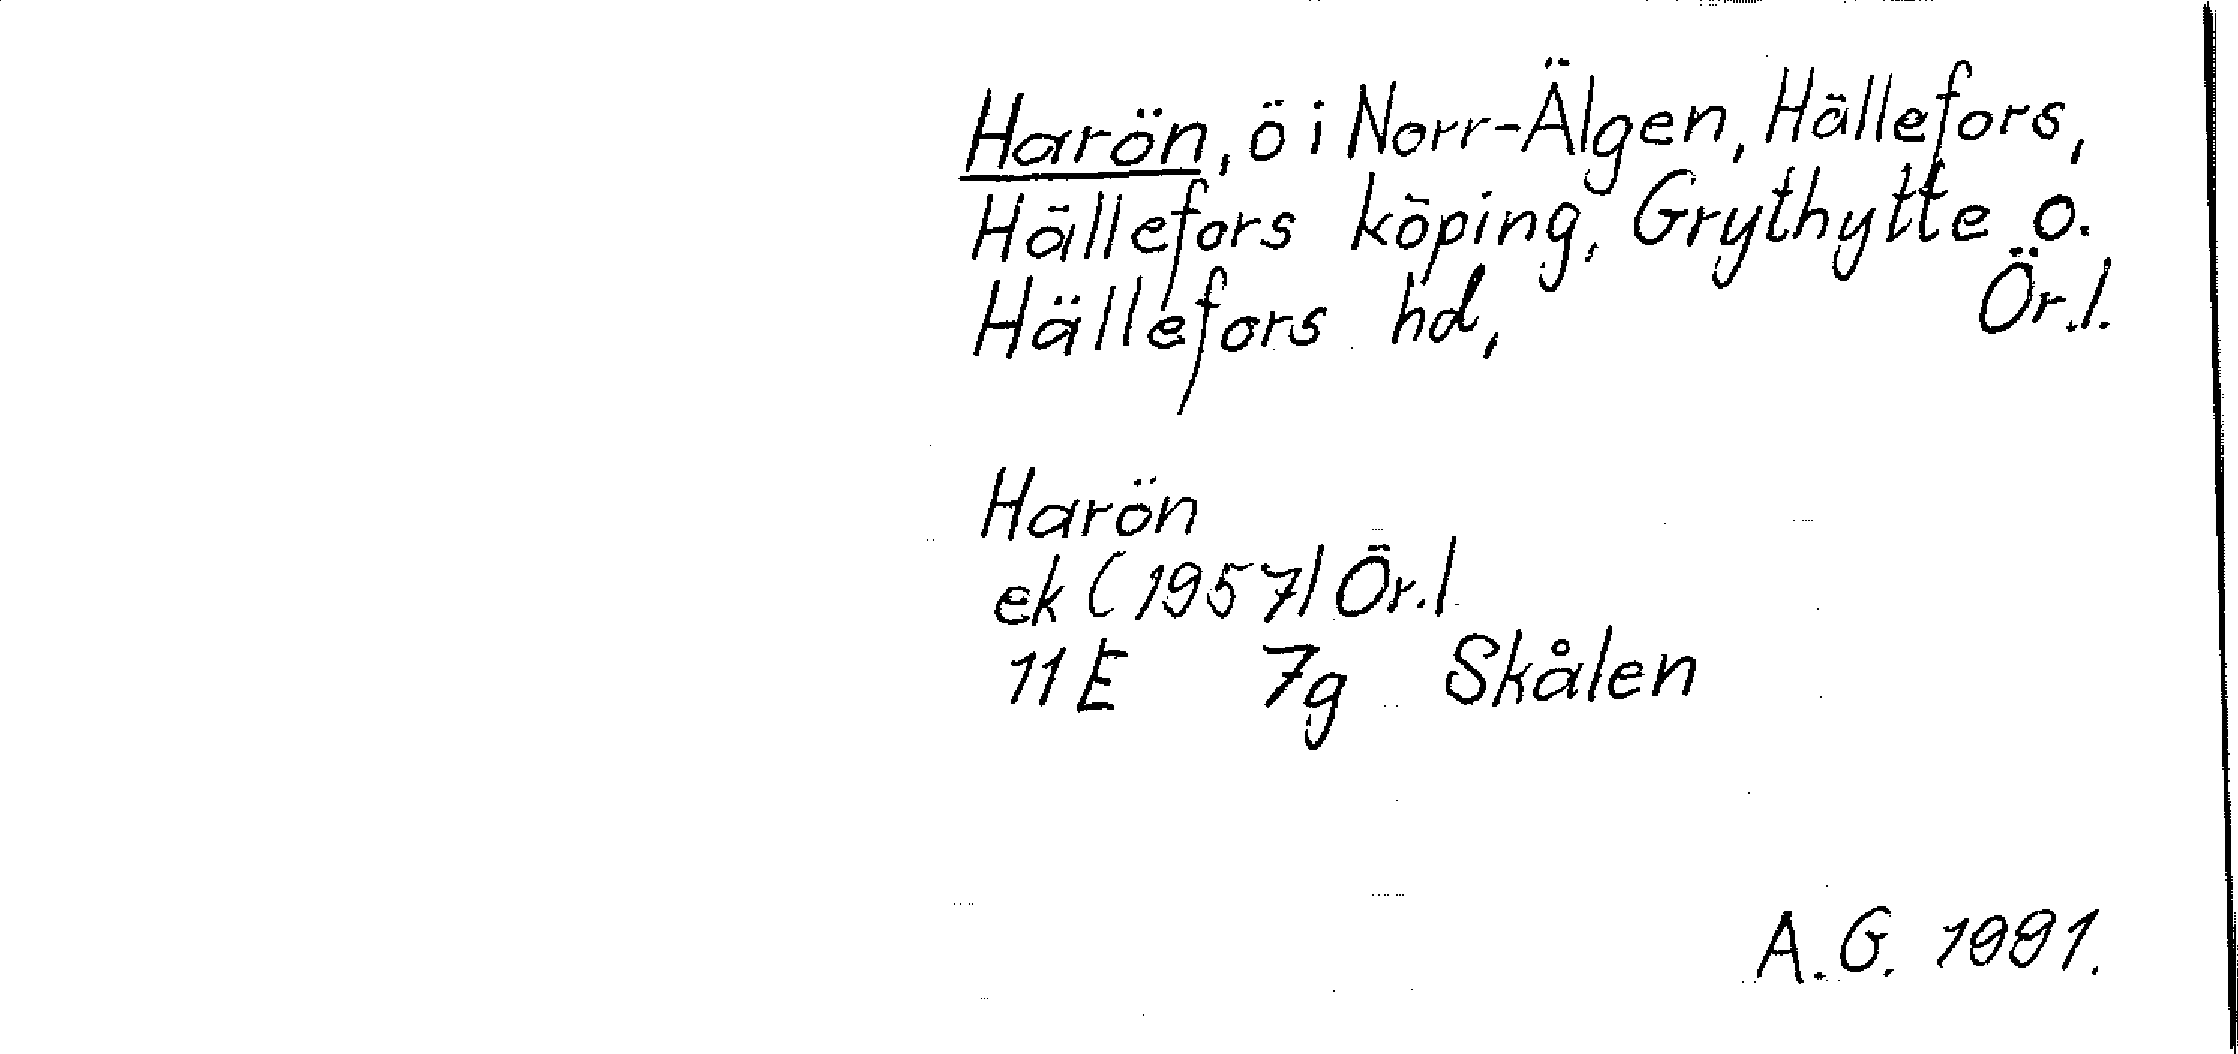 Harön, ö i Norr-Älgen, Hällefors,
Hällefors köping, Grythytte o.
Hällefors hd, Ör.l.
Harön
ek (1957) Ör.l
11E 7g Skålen
A.G. 1991.